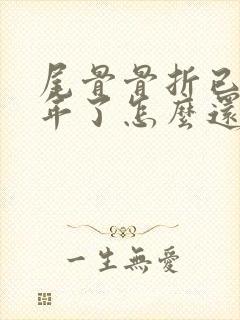 尾骨骨折已
年了怎麼還
一生無愛